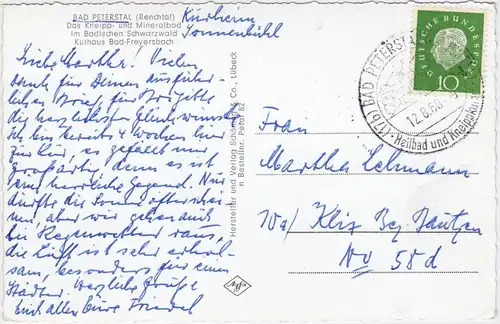 BAD PETERSTAL (Renchtal)
Das Kneipp- und Mineralbad
im Badischen Schwarzwald
Kurhaus Bad-Freyersbach
Kurheim
Sonnenbühl
Liebe Martha! Vielen
Dank für Deinen ausführ-
lichen Brief, für Brigitte
die herzlichsten Glückwünsche
Ich bin bereits 4 Wochen hier
zur Kur, es gefällt mir
großartig, denn es ist
eine herrliche Gegend. Nur
dürfte die Sonne öfter schei-
nen, aber wir gehen auch
bei Regenwetter raus,
die Luft ist sehr erhol-
sam, besonders für einen
Städter. Herzliche Grüße
Euch allen Eure Friedel
Hersteller und Verlag Schöning & Co., Lübeck
Bestellnr. Petal 82
Agfa
DEUTSCHE BUNDESPOST
10
(17b) BAD PETERSTAL
12.8.60
Heilbad und Kneippkurort
Frau
Martha Lehmann
10a/ Klix Bez Bautzen
No 58d